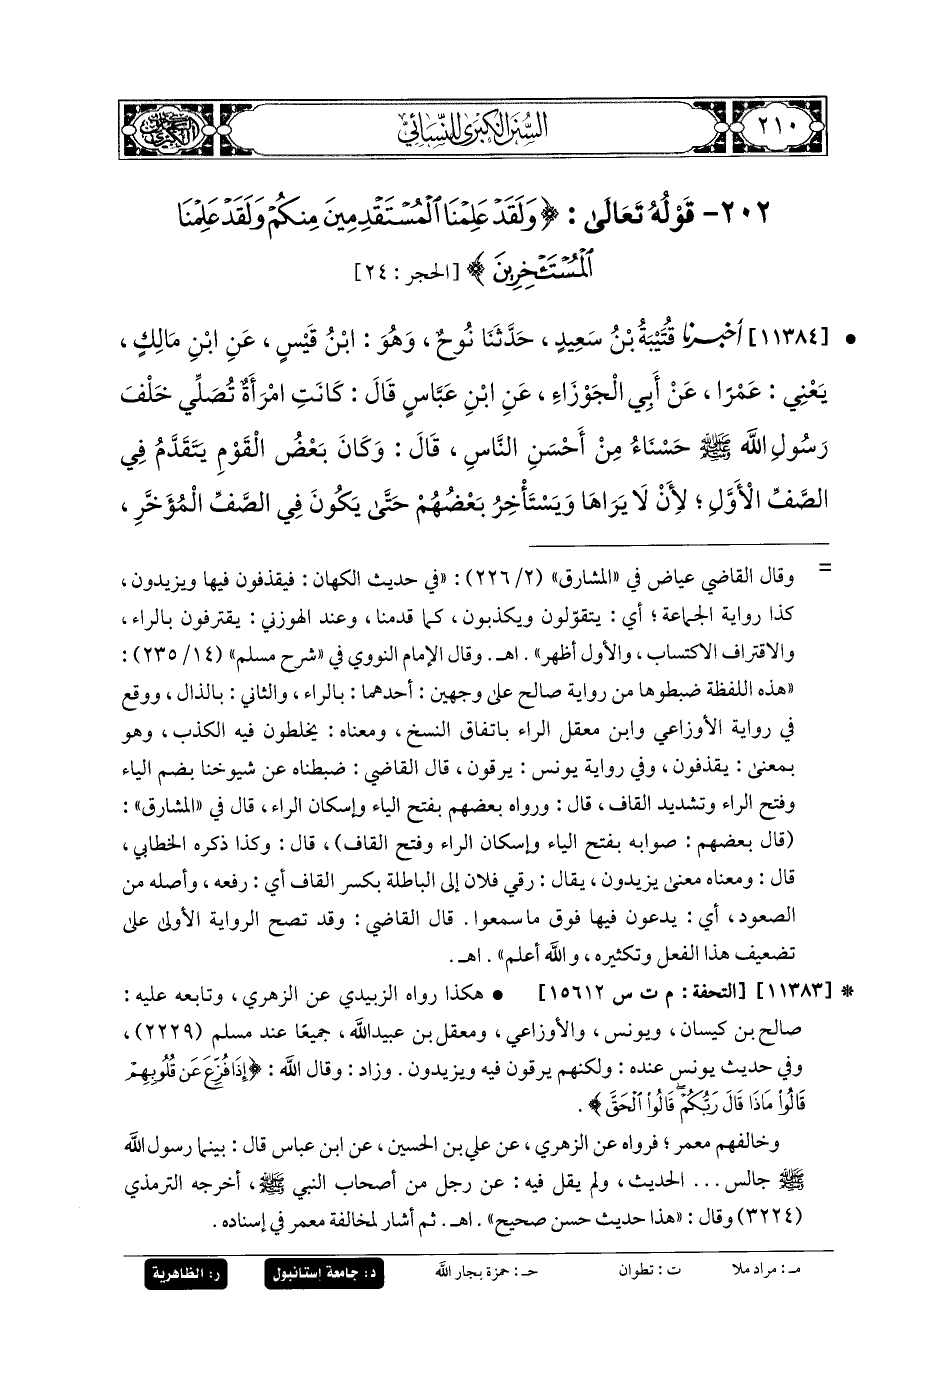 السنن الكبرى للنسائي
٢١٠
٢٠٢- قَوْلُهُ تَعَالَىٰ : ﴿ وَلَقَدْ عَلِمْنَا ٱلْمُسْتَقْدِمِينَ مِنكُمْ وَلَقَدْ عَلِمْنَا
ٱلْمُسْتَـْٔخِرِينَ ﴾ [الحجر : ٢٤]
• [١١٣٨٤] أخبرنا قُتَيْبَةُ بْنُ سَعِيدٍ ، حَدَّثَنَا نُوحٌ ، وَهُوَ : ابْنُ قَيْسٍ ، عَنِ ابْنِ مَالِكٍ ،
يَعْنِي : عَمْرًا ، عَنْ أَبِي الْجَوْزَاءِ ، عَنِ ابْنِ عَبَّاسٍ قَالَ : كَانَتِ امْرَأَةٌ تُصَلِّي خَلْفَ
رَسُولِ اللَّهِ ﷺ حَسْنَاءُ مِنْ أَحْسَنِ النَّاسِ ، قَالَ : وَكَانَ بَعْضُ الْقَوْمِ يَتَقَدَّمُ فِي
الصَّفِّ الْأَوَّلِ ؛ لِأَنْ لَا يَرَاهَا وَيَسْتَأْخِرُ بَعْضُهُمْ حَتَّىٰ يَكُونَ فِي الصَّفِّ الْمُؤَخَّرِ ،
= وقال القاضي عياض في «المشارق» (٢/ ٢٢٦) : «في حديث الكهان : فيقذفون فيها ويزيدون ،
كذا رواية الجماعة ؛ أي : يتقوّلون ويكذبون ، كما قدمنا ، وعند الهوزني : يقترفون بالراء ،
والاقتراف الاكتساب ، والأول أظهر» . اهـ. وقال الإمام النووي في «شرح مسلم» (١٤/ ٢٣٥) :
«هذه اللفظة ضبطوها من رواية صالح علىٰ وجهين : أحدهما : بالراء ، والثاني : بالذال ، ووقع
في رواية الأوزاعي وابن معقل الراء باتفاق النسخ ، ومعناه : يخلطون فيه الكذب ، وهو
بمعنىٰ : يقذفون ، وفي رواية يونس : يرقون ، قال القاضي : ضبطناه عن شيوخنا بضم الياء
وفتح الراء وتشديد القاف ، قال : ورواه بعضهم بفتح الياء وإسكان الراء ، قال في «المشارق» :
(قال بعضهم : صوابه بفتح الياء وإسكان الراء وفتح القاف) ، قال : وكذا ذكره الخطابي ،
قال : ومعناه معنىٰ يزيدون ، يقال : رقي فلان إلى الباطلة بكسر القاف أي : رفعه ، وأصله من
الصعود ، أي : يدعون فيها فوق ما سمعوا . قال القاضي : وقد تصح الرواية الأولىٰ علىٰ
تضعيف هذا الفعل وتكثيره ، والله أعلم» . اهـ .
* [١١٣٨٣] [التحفة : م ت س ١٥٦١٢] • هكذا رواه الزبيدي عن الزهري ، وتابعه عليه :
صالح بن كيسان ، ويونس ، والأوزاعي ، ومعقل بن عبيدالله ، جميعًا عند مسلم (٢٢٢٩) ،
وفي حديث يونس عنده : ولكنهم يرقون فيه ويزيدون . وزاد : وقال الله : ﴿ إِذَا فُزِّعَ عَن قُلُوبِهِمْ
قَالُوا۟ مَاذَا قَالَ رَبُّكُمْ ۖ قَالُوا۟ ٱلْحَقَّ ﴾ .
وخالفهم معمر ؛ فرواه عن الزهري ، عن علي بن الحسين ، عن ابن عباس قال : بينما رسول الله
ﷺ جالس ... الحديث ، ولم يقل فيه : عن رجل من أصحاب النبي ﷺ ، أخرجه الترمذي
(٣٢٢٤) وقال : «هذا حديث حسن صحيح» . اهـ. ثم أشار لمخالفة معمر في إسناده .
مـ : مراد ملا ت : تطوان حـ : حمزة بجار الله د : جامعة إستانبول ر : الظاهرية